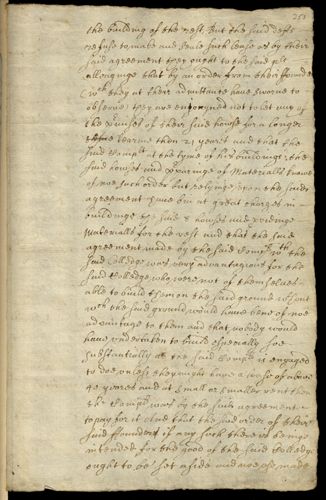 251
the building of the rest, But the said defts
refuse to make and Seale such lease as by their
said agreement they ought to the said plt
alledging that by an order from their founder
wch they at their admittance have sworne to
observe they are enjoyned not to let any of
the prmises of their said howse for a longer
tearme then 21 yeares and that the
said Compt at the tyme of his buildinge the
said howses and prparing of Materialls knew
of noe such order but relyinge upon the said
agreement have bin at great charges in
buildinge the said howses and
Materialls for the rest and that the said
agreement made by the said Compt wth the
said Colledge was very advantagious for the
said Colledge who were not of themselves
able to build them on the said ground without
wch the said ground would have bene of noe
advantage to them and that nobody would
have undertaken to build especially soe
substantially as the said Compt is engaged
to doe unless they might have a lease of above
40 yeares and at small or smaller rent then
the Compt was by the said agreement
to pay for it And that the said order of their
said founders if any such there is beinge
intended for the good of the said Colledge
ought to be set aside and not made